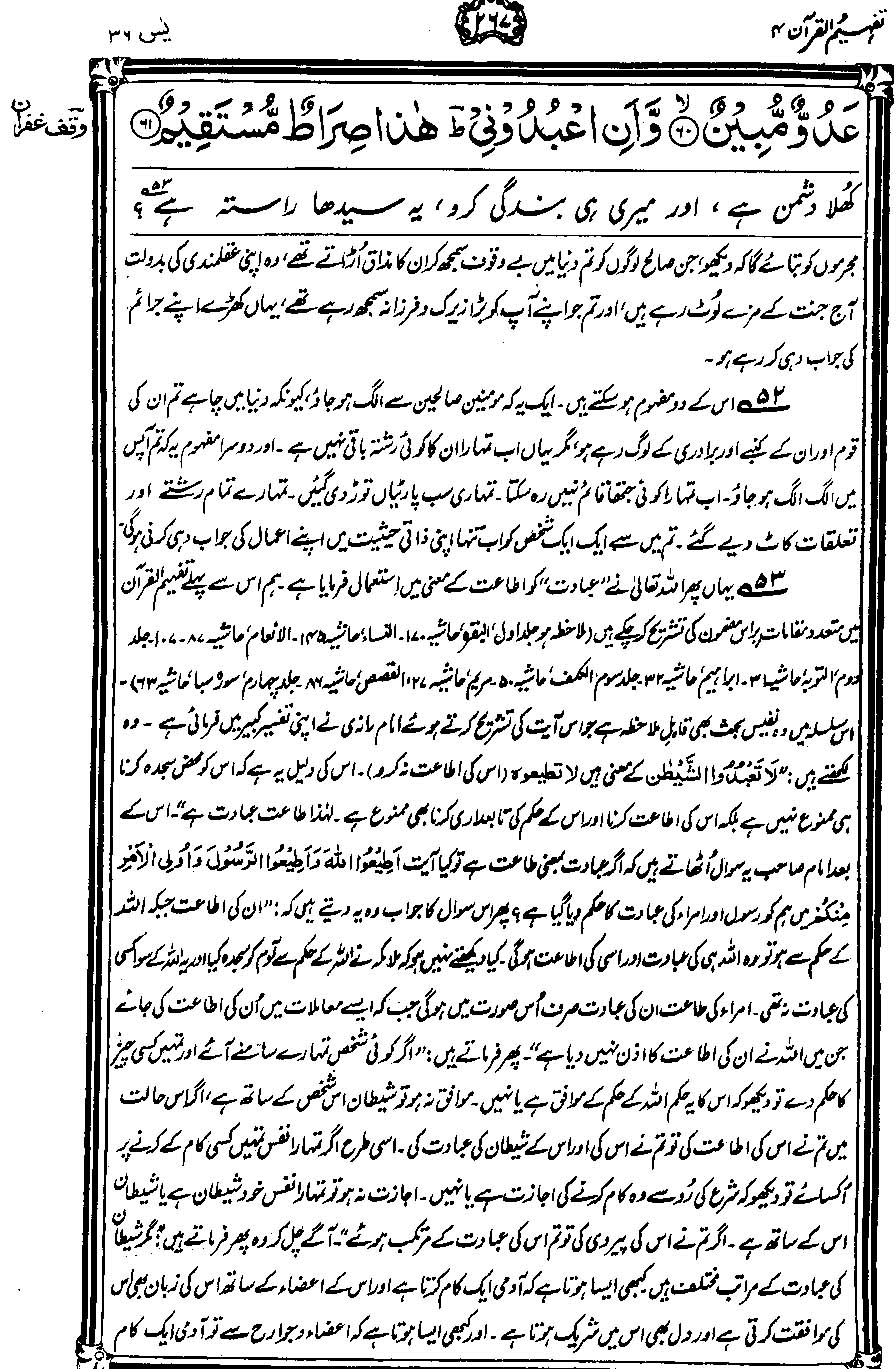 تفہیم القرآن ۴
۲۶۷
یٰس ۳۶
عَدُوٌّ مُّبِیْنٌ ۙ﴿۶۰﴾ وَّ اَنِ اعْبُدُوْنِیْ ؕ هٰذَا صِرَاطٌ مُّسْتَقِیْمٌ ﴿۶۱﴾
وقف غفران
کھلا دشمن ہے، اور میری ہی بندگی کرو، یہ سیدھا راستہ ہے ۵۳؟
مجرموں کو بتائے گا کہ دیکھو، جن صالح لوگوں کو تم دنیا میں بے وقوف سمجھ کر ان کا مذاق اُڑاتے تھے، وہ اپنی عقلمندی کی بدولت
آج جنت کے مزے لُوٹ رہے ہیں، اور تم جو اپنے آپ کو بڑا زیرک و فرزانہ سمجھ رہے تھے، یہاں کھڑے اپنے جرائم
کی جواب دہی کر رہے ہو۔
۵۲ اس کے دو مفہوم ہو سکتے ہیں۔ ایک یہ کہ مومنین صالحین سے الگ ہو جاؤ، کیونکہ دنیا میں چاہے تم ان کی
قوم اور ان کے کنبے اور برادری کے لوگ رہے ہو، مگر یہاں اب تمہارا ان کا کوئی رشتہ باقی نہیں ہے۔ اور دوسرا مفہوم یہ کہ تم آپس
میں الگ الگ ہو جاؤ۔ اب تمہارا کوئی جتھا قائم نہیں رہ سکتا۔ تمہاری سب پارٹیاں توڑ دی گئیں۔ تمہارے تمام رشتے اور
تعلقات کاٹ دیے گئے۔ تم میں سے ایک ایک شخص کو اب تنہا اپنی ذاتی حیثیت میں اپنے اعمال کی جواب دہی کرنی ہوگی۔
۵۳ یہاں پھر اللہ تعالیٰ نے "عبادت" کو اطاعت کے معنی میں استعمال فرمایا ہے۔ ہم اس سے پہلے تفہیم القرآن
میں متعدد مقامات پر اس مضمون کی تشریح کر چکے ہیں (ملاحظہ ہو جلد اول، البقرہ، حاشیہ ۱۷۰۔ النساء، حاشیہ ۱۴۵۔ الانعام، حاشیہ ۸۷۔۱۰۷۔ جلد
دوم، التوبہ، حاشیہ ۳۱۔ ابراہیم، حاشیہ ۳۲۔ جلد سوم، الکہف، حاشیہ ۵۰۔ مریم، حاشیہ ۲۷، القصص، حاشیہ ۸۶۔ جلد چہارم، سورۂ سبا، حاشیہ ۶۳)۔
اس سلسلہ میں وہ نفیس بحث بھی قابلِ ملاحظہ ہے جو اس آیت کی تشریح کرتے ہوئے امام رازی نے اپنی تفسیر کبیر میں فرمائی ہے۔ وہ
لکھتے ہیں: "لَا تَعْبُدُوا الشَّیْطٰن کے معنی ہیں لا تطیعوہ (اس کی اطاعت نہ کرو)۔ اس کی دلیل یہ ہے کہ اس کو محض سجدہ کرنا
ہی ممنوع نہیں ہے بلکہ اس کی اطاعت کرنا اور اس کے حکم کی تابعداری کرنا بھی ممنوع ہے۔ لہٰذا طاعت عبادت ہے"۔ اس کے
بعد امام صاحب یہ سوال اُٹھاتے ہیں کہ اگر عبادت بمعنی طاعت ہے تو کیا آیت اَطِیْعُوا اللّٰهَ وَاَطِیْعُوا الرَّسُوْلَ وَاُولِی الْاَمْرِ
مِنْکُمْ میں ہم کو رسول اور امراء کی عبادت کا حکم دیا گیا ہے؟ پھر اس سوال کا جواب وہ یہ دیتے ہیں کہ: "ان کی اطاعت جبکہ اللہ
کے حکم سے ہو تو وہ اللہ ہی کی عبادت اور اسی کی اطاعت ہوگی۔ کیا دیکھتے نہیں ہو کہ ملائکہ نے اللہ کے حکم سے آدم کو سجدہ کیا اور یہ اللہ کے سوا کسی
کی عبادت نہ تھی۔ امراء کی طاعت ان کی عبادت صرف اُس صورت میں ہوگی جب کہ ایسے معاملات میں اُن کی اطاعت کی جائے
جن میں اللہ نے ان کی اطاعت کا اذن نہیں دیا ہے"۔ پھر فرماتے ہیں: "اگر کوئی شخص تمہارے سامنے آئے اور تمہیں کسی چیز
کا حکم دے تو دیکھو کہ اس کا یہ حکم اللہ کے حکم کے موافق ہے یا نہیں۔ موافق نہ ہو تو شیطان اس شخص کے ساتھ ہے، اگر اس حالت
میں تم نے اس کی اطاعت کی تو تم نے اس کی اور اس کے شیطان کی عبادت کی۔ اسی طرح اگر تمہارا نفس تمہیں کسی کام کے کرنے پر
اُکسائے تو دیکھو کہ شرع کی رُو سے وہ کام کرنے کی اجازت ہے یا نہیں۔ اجازت نہ ہو تو تمہارا نفس خود شیطان ہے یا شیطان
اس کے ساتھ ہے۔ اگر تم نے اس کی پیروی کی تو تم اس کی عبادت کے مرتکب ہوئے"۔ آگے چل کر وہ پھر فرماتے ہیں: "مگر شیطان
کی عبادت کے مراتب مختلف ہیں۔ کبھی ایسا ہوتا ہے کہ آدمی ایک کام کرتا ہے اور اس کے اعضاء کے ساتھ اس کی زبان بھی اس
کی موافقت کرتی ہے اور دل بھی اس میں شریک ہوتا ہے۔ اور کبھی ایسا ہوتا ہے کہ اعضاء و جوارح سے تو آدمی ایک کام